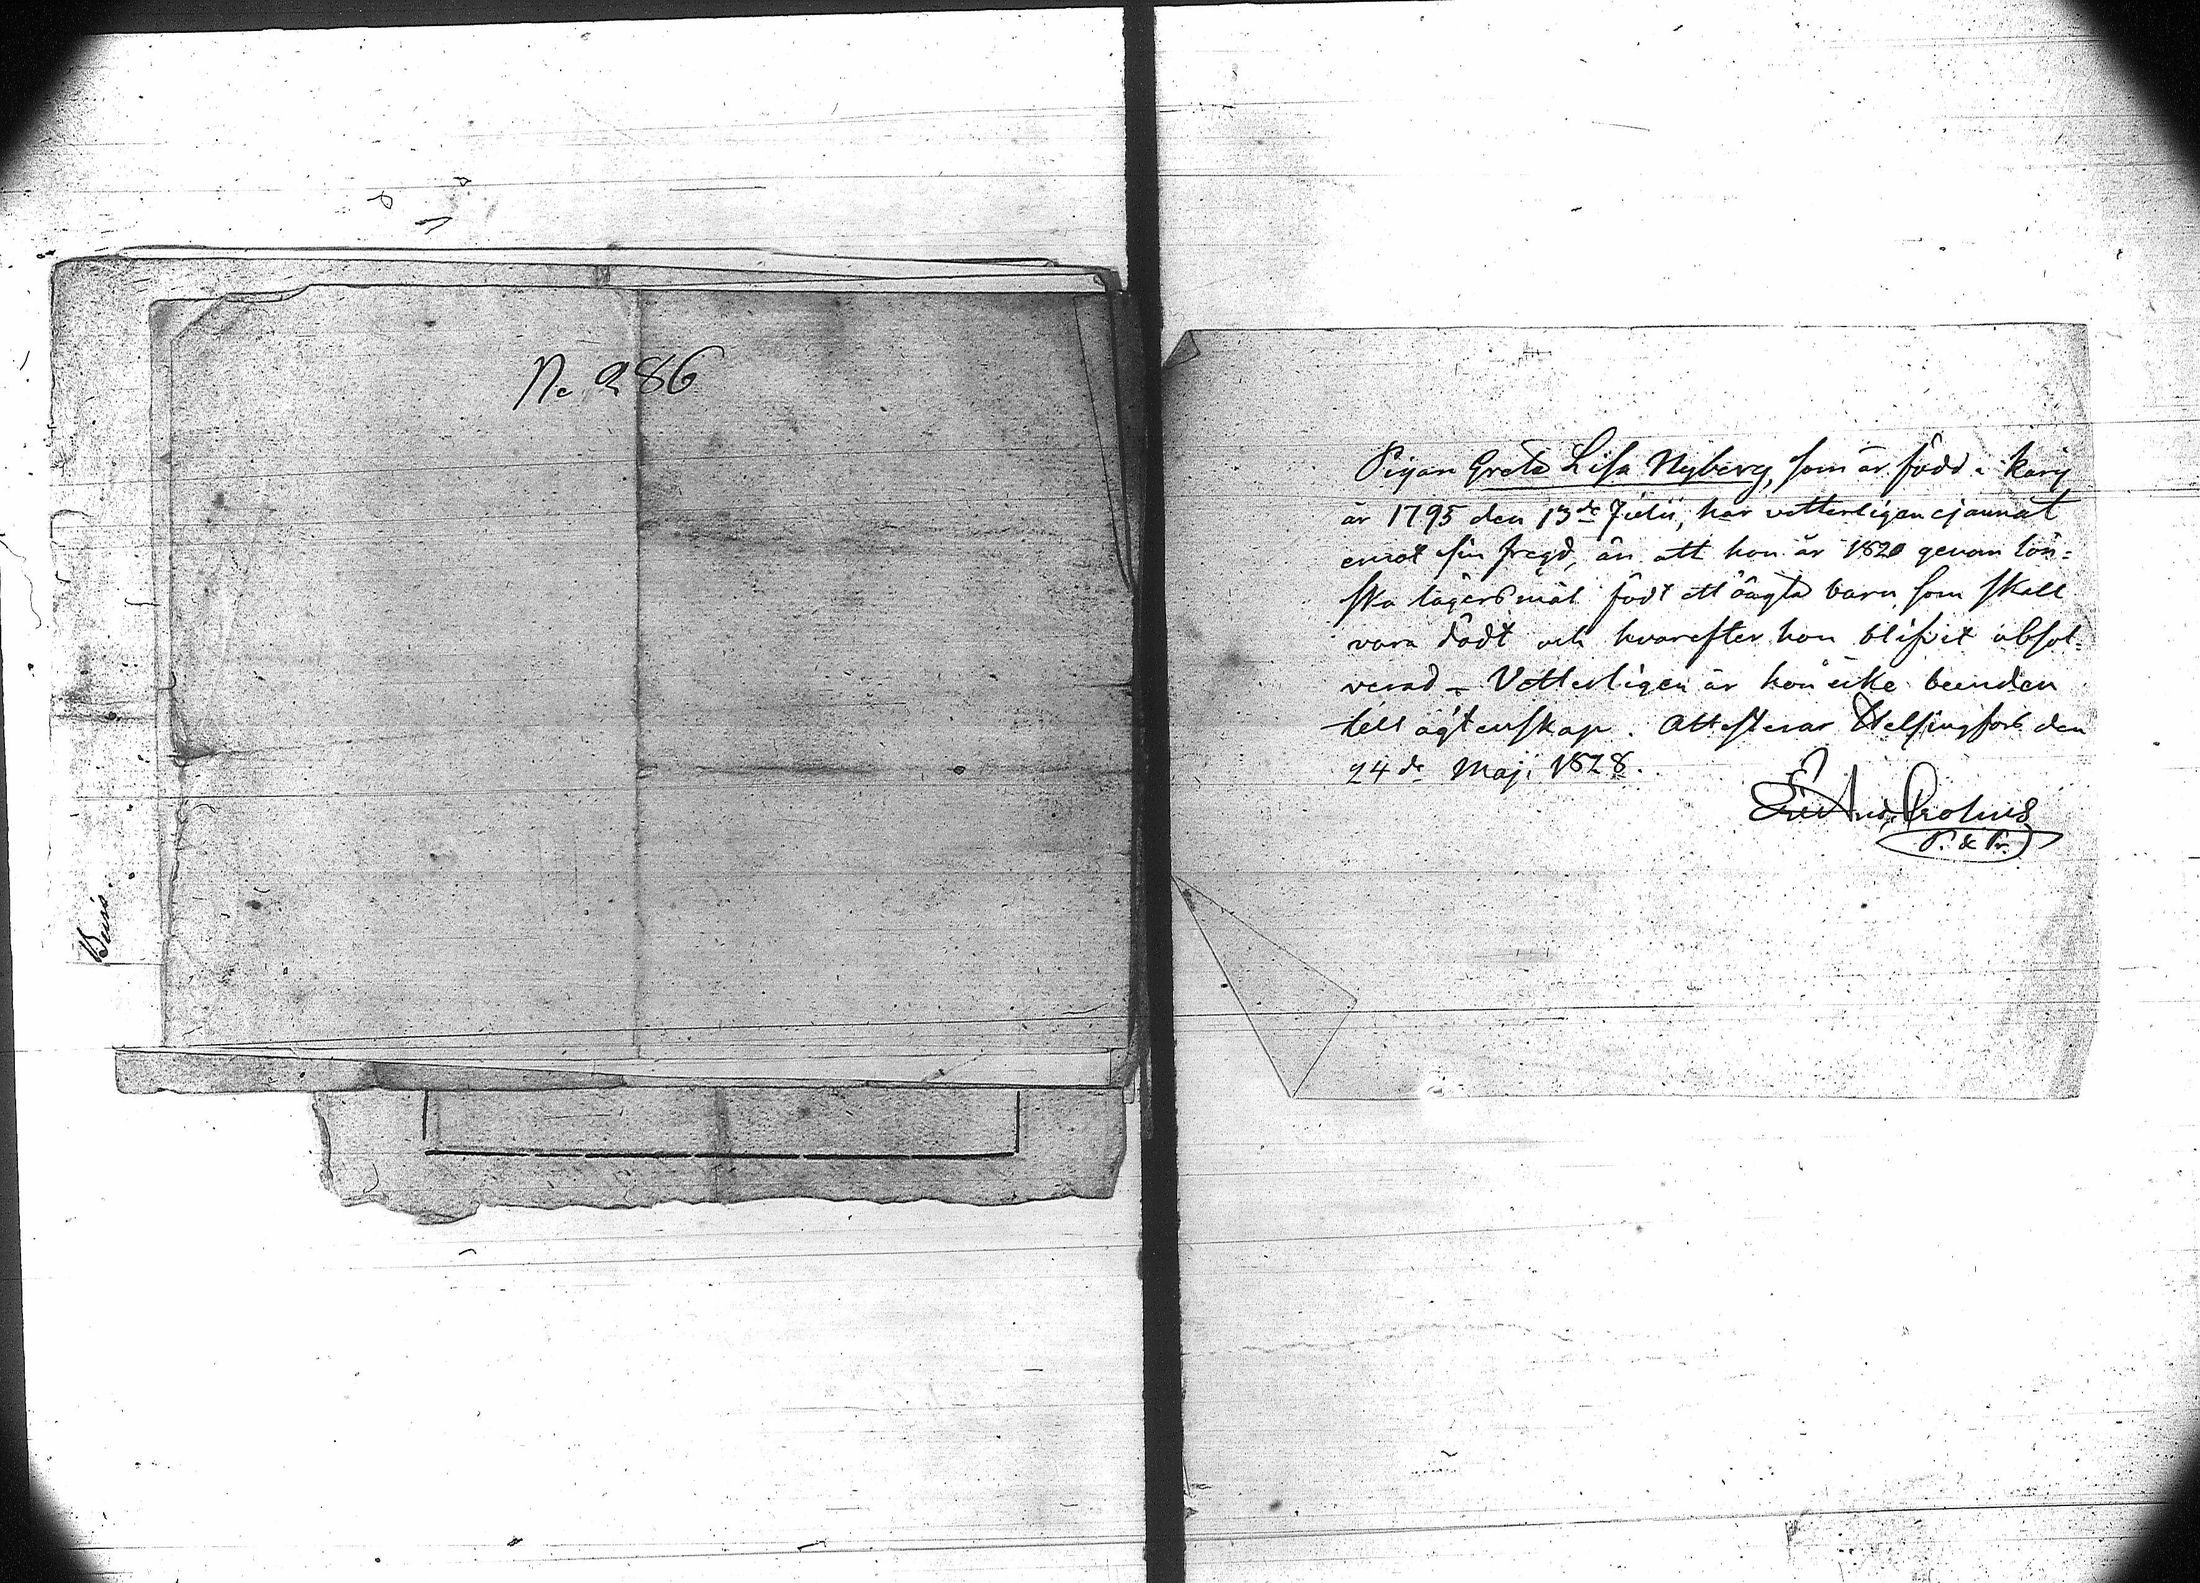 No 286
Bevis.
Pigan Greta Lisa Nyberg, som är född i Karis
år 1795 den 13de Julii, har vetterligen ej annat
emot sin fregd, än att hon år 1820 genom lön=
ska lägersmål födt ett oägta barn, som skall
vara dödt och hvarefter hon blifvit absol=
verad – Vetterligen är hon icke bunden
till ägtenskap. Attesterar Helsingfors den
24de Maji 1828.
And. Crohns
P. & Pr.